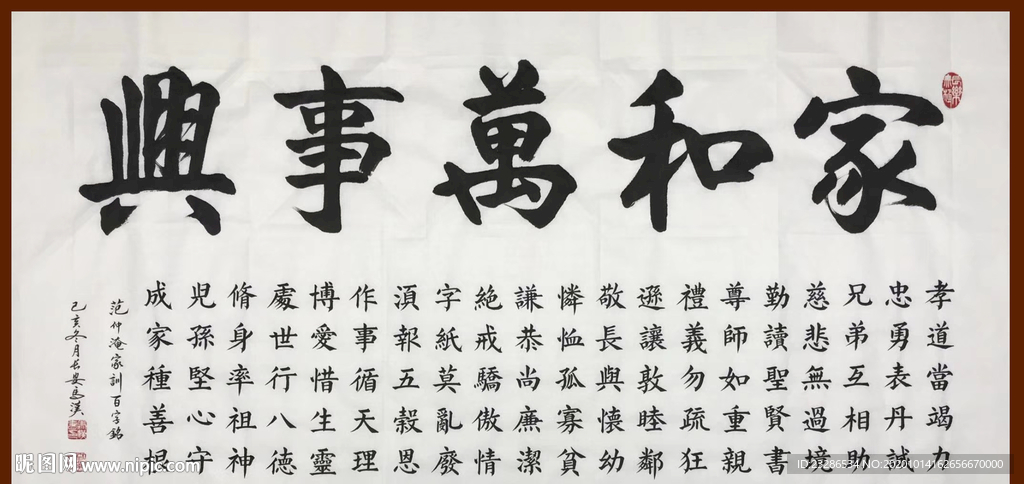 家和萬事興
孝道當竭力
忠勇表丹誠
兄弟互相助
慈悲無過境
勤讀聖賢書
尊師如重親
禮義勿疏狂
遜讓敦睦鄰
敬長與懷幼
憐恤孤寡貧
謙恭尚廉潔
絕戒驕傲情
字紙莫亂廢
須報五穀恩
作事循天理
博愛惜生靈
處世行八德
脩身率祖神
児孫堅心守
成家種善根
范仲淹家訓百字銘
己亥冬月
昵图网 www.nipic.com
ID:23286534 NO:20201014162656670000